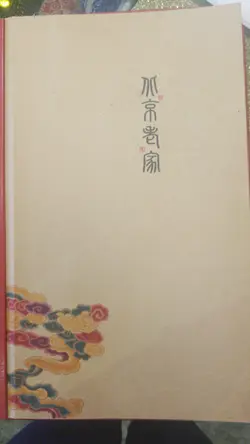 北京老家